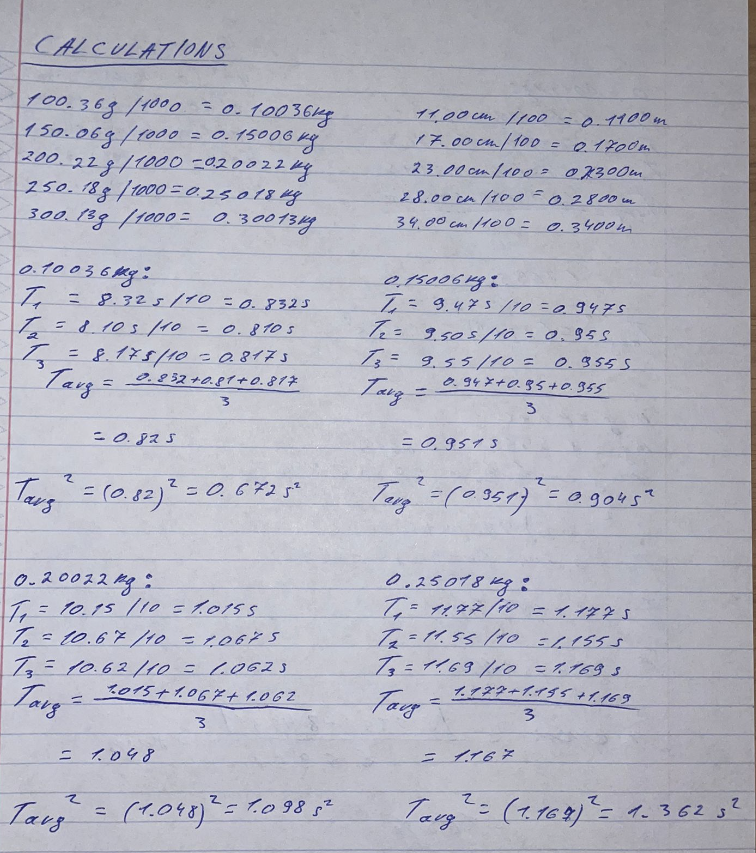 CALCULATIONS
100.36g /1000 = 0.10036kg
150.06g /1000 = 0.15006kg
200.22g /1000 = 0.20022kg
250.18g /1000 = 0.25018kg
300.13g /1000 = 0.30013kg
11.00cm /100 = 0.1100m
17.00cm/100 = 0.1700m
23.00cm/100 = 0.2300m
28.00cm/100 = 0.2800m
34.00cm/100 = 0.3400m
0.10036kg:
T1 = 8.32s/10 = 0.832s
T2 = 8.10s/10 = 0.810s
T3 = 8.17s/10 = 0.817s
Tavg = (0.832+0.81+0.817)/3
= 0.82s
Tavg² = (0.82)² = 0.672s²
0.15006kg:
T1 = 9.47s/10 = 0.947s
T2 = 9.50s/10 = 0.95s
T3 = 9.55/10 = 0.955s
Tavg = (0.947+0.95+0.955)/3
= 0.951s
Tavg² = (0.951)² = 0.904s²
0.20022kg:
T1 = 10.15/10 = 1.015s
T2 = 10.67/10 = 1.067s
T3 = 10.62/10 = 1.062s
Tavg = (1.015+1.067+1.062)/3
= 1.048
Tavg² = (1.048)² = 1.098s²
0.25018kg:
T1 = 11.77/10 = 1.177s
T2 = 11.55/10 = 1.155s
T3 = 11.69/10 = 1.169s
Tavg = (1.177+1.155+1.169)/3
= 1.167
Tavg² = (1.167)² = 1.362s²